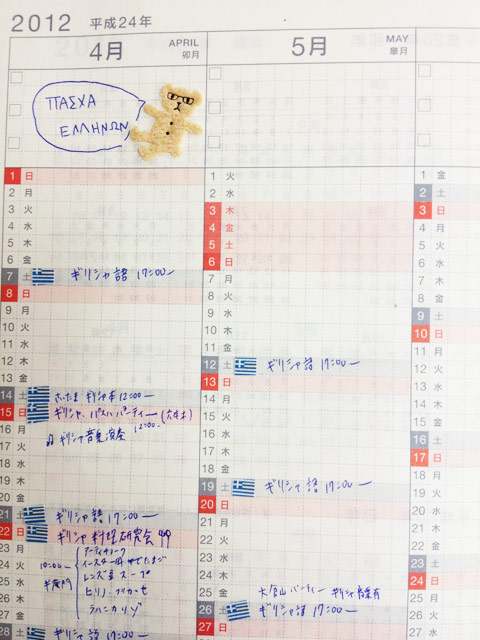 2012 平成24年
4月 APRIL 卯月
5月 MAY 皐月
ΠΑΣΧΑ
ΕΛΛΗΝΩΝ
1 日
2 月
3 火
4 水
5 木
6 金
7 土 ギリシャ語 17:00〜
8 日
9 月
10 火
11 水
12 木
13 金
14 土 さいたま ギリシャ 12:00〜
15 日 ギリシャ パスハパーティー
16 月 ギリシャ音楽演奏 12:00〜
17 火
18 水
19 木
20 金
21 土 ギリシャ語 17:00〜
22 日 ギリシャ料理研究会
23 月 アーティチョーク
24 火 10:00〜 イースター ゆでたまご
25 水 レンズ豆スープ
26 木
27 金
28 土 ギリシャ語 17:00〜
1 火
2 水
3 木
4 金
5 土
6 日
7 月
8 火
9 水
10 木
11 金
12 土 ギリシャ語 17:00〜
13 日
14 月
15 火
16 水
17 木
18 金
19 土 ギリシャ語 17:00〜
20 日
21 月
22 火
23 水
24 木
25 金 大倉山パーティー
26 土 ギリシャ語 17:00〜
27 日
1 金
2 土
3 日
4 月
5 火
6 水
7 木
8 金
9 土
10 日
11 月
12 火
13 水
14 木
15 金
16 土
17 日
18 月
19 火
20 水
21 木
22 金
23 土
24 日
25 月
26 火
27 水